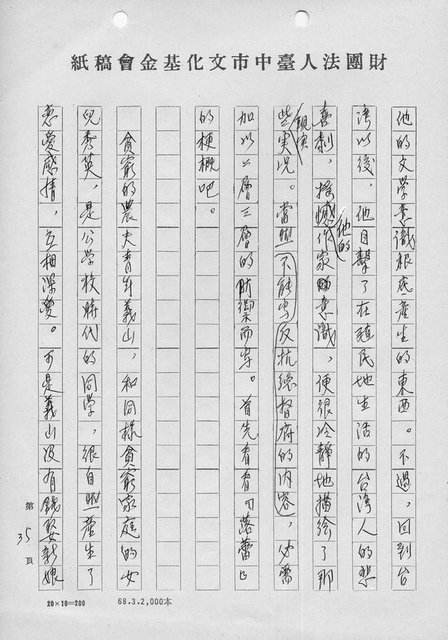 財團法人臺中市文化基金會稿紙
他的文學意識根民產生的東西。不過,回到台
湾以後,他目擊了在殖民地生活的台湾人的悲
喜剧,接憾作家的意識,便很冷靜地描繪了那
他的
些實況。當然不能寫反抗總督府的內容,必需
現实
加以二層三層的防禦而写。首先看看「落蕾」
的梗概吧。
貧窮的農夫青年義山,和同樣貧窮家庭的女
兒秀英,是公學校時代的同學,很自然產生了
恋愛感情,互相深愛。可是義山沒有錢娶新娘
第35頁
20×10=200
68.3.2,000本